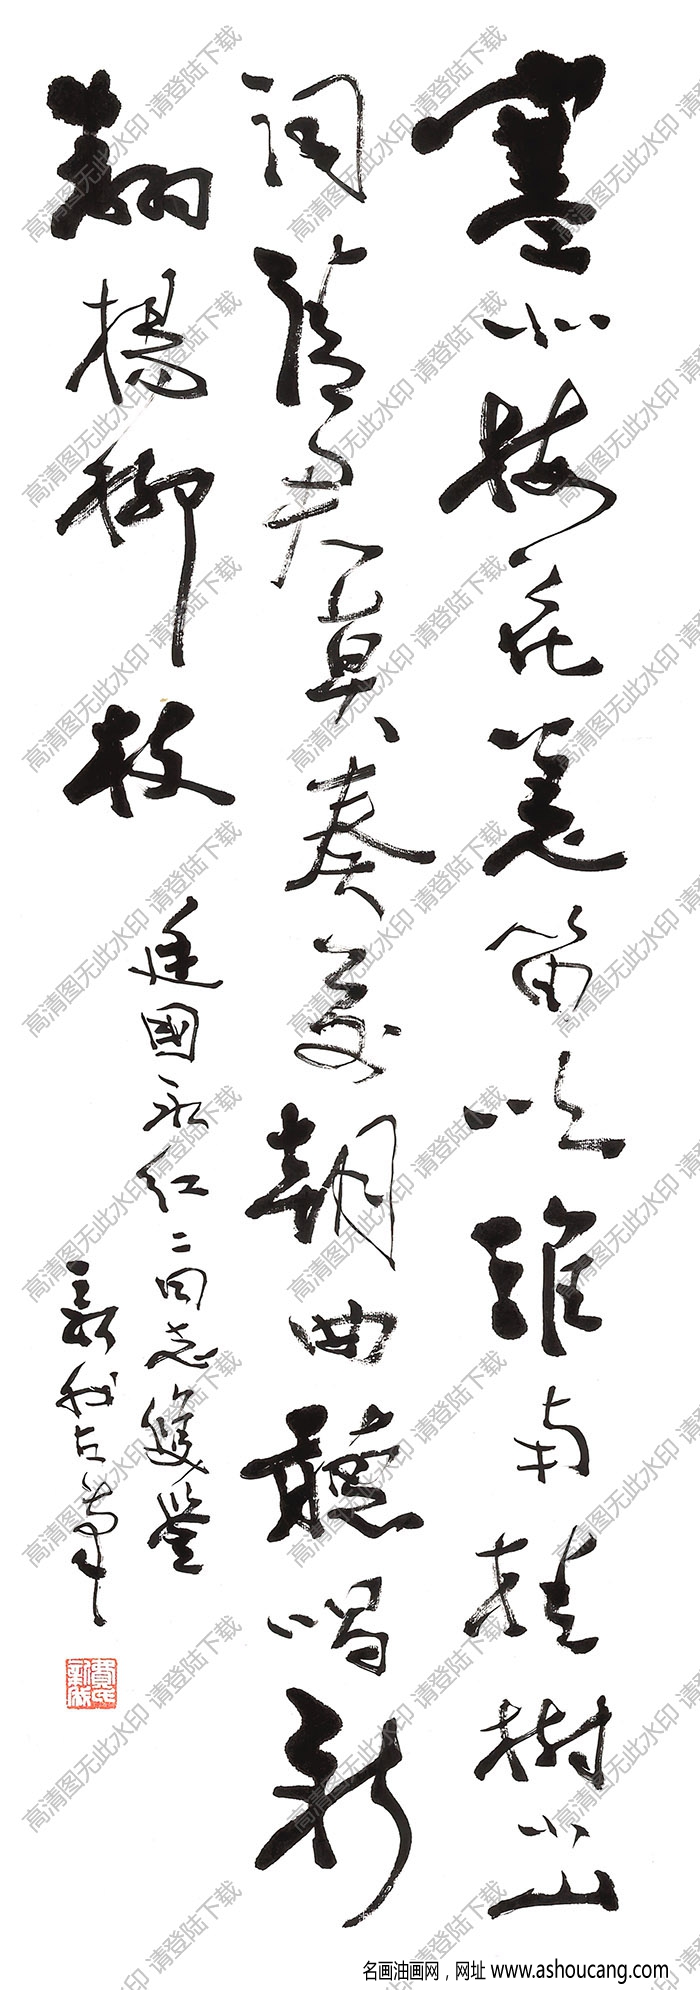 塞北梅花羌笛吹淮南桂树小山
词请君莫奏前朝曲听唱新
翻杨柳枝
延国永红二同志双鉴
新我左笔
费氏新我
高清图无此水印 请登陆下载
名画油画网，网址 www.ashoucang.com